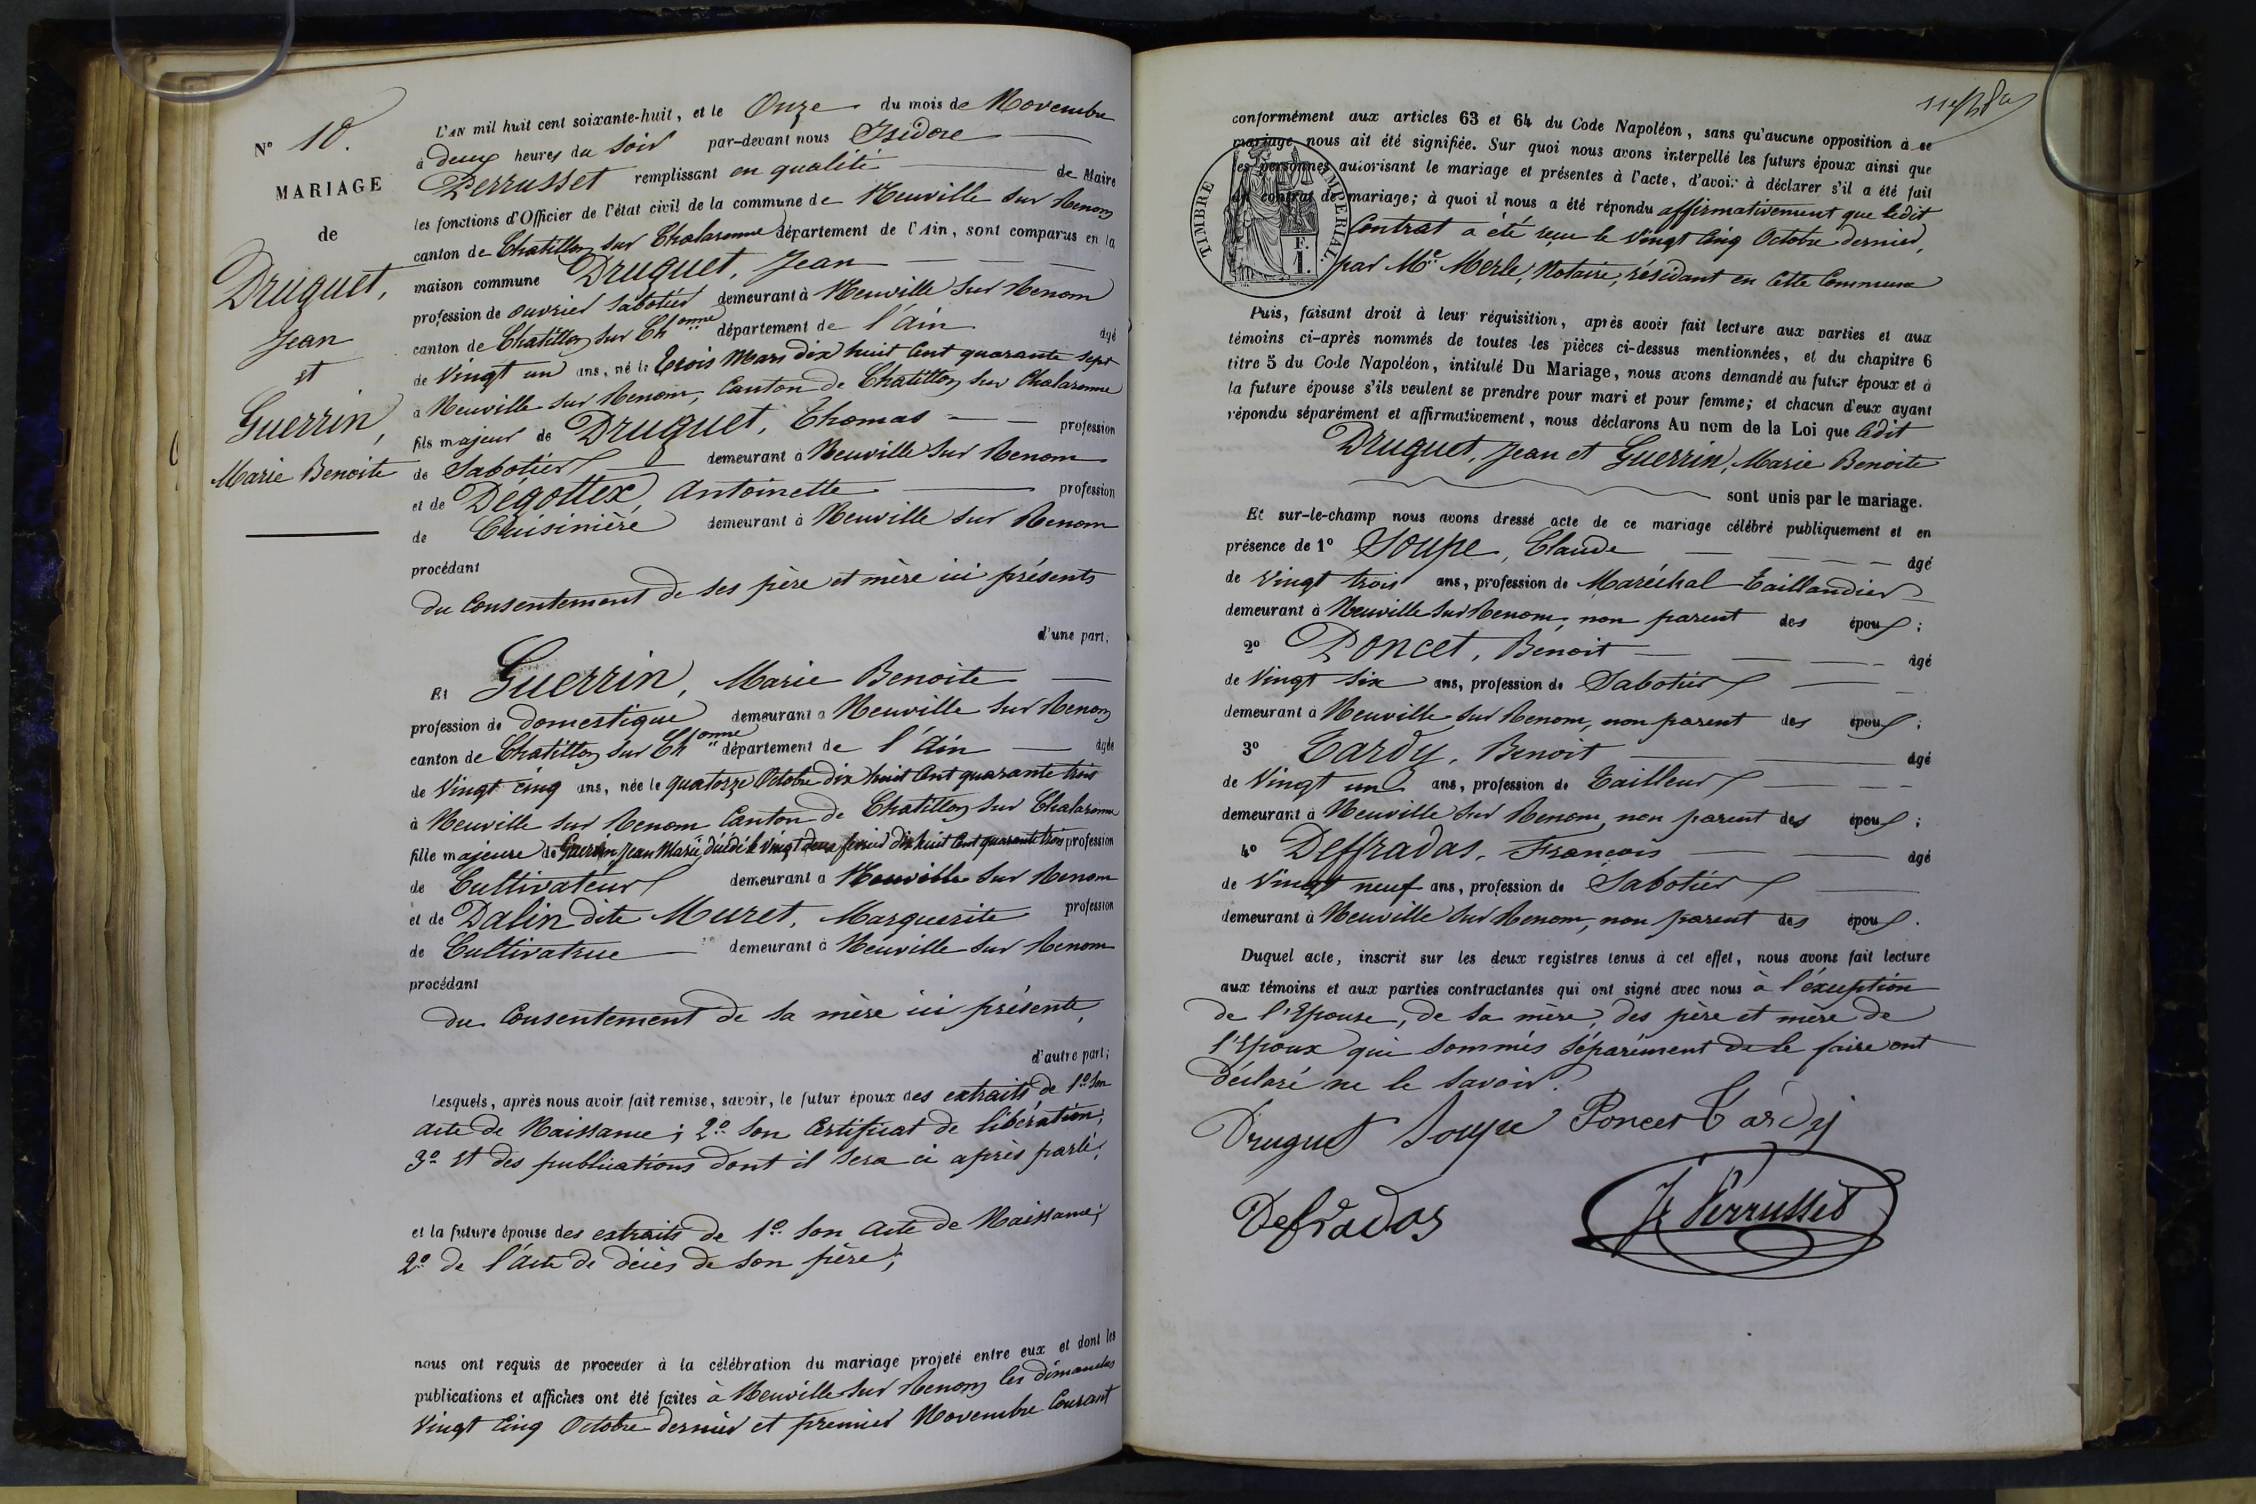 N° 10.
MARIAGE
de
Druguet,
Jean
et
Guerrin,
Marie Benoite
L'AN mil huit cent soixante-huit, et le Onze du mois de Novembre
à deux heures du soir par-devant nous Isidore
Perrusset remplissant en qualité de Maire
les fonctions d'Officier de l'état civil de la commune de Neuville sur Renom
canton de Chatillon sur Chalaronne département de l'Ain, sont comparus en la
maison commune Druguet, Jean
profession de ouvrier sabotier demeurant à Neuville sur Renom
canton de Chatillon sur Chonne département de l'Ain âgé
de Vingt un ans, né le trois Mars dix huit cent quarante sept
à Neuville sur Renom, Canton de Chatillon sur Chalaronne
fils majeur de Druguet, Thomas profession
de Sabotier demeurant à Neuville sur Renom
et de Dégottex, Antoinette profession
de Cuisinière demeurant à Neuville sur Renom
procédant
du Consentement de ses père et mère ici présents
d'une part;
Et Guerrin, Marie Benoite
profession de domestique demeurant à Neuville sur Renom
canton de Chatillon sur Chonne département de l'Ain âgée
de Vingt cinq ans, née le quatorze Octobre dix huit cent quarante trois
à Neuville sur Renom Canton de Chatillon sur Chalaronne
fille majeure de Guerrin Jean Marie, décédé le vingt deux février dix huit cent quarante trois profession
de Cultivateur demeurant à Neuville sur Renom
et de Dalin dite Muret, Marguerite profession
de Cultivatrice demeurant à Neuville sur Renom
procédant
du Consentement de sa mère ici présente,
d'autre part;
Lesquels, après nous avoir fait remise, savoir, le futur époux des extraits de 1° son
acte de Naissance; 2° son Certificat de libération;
3° et des publications dont il sera ci après parlé;
et la future épouse des extraits de 1° son acte de Naissance;
2° de l'acte de décès de son père;
nous ont requis de procéder à la célébration du mariage projeté entre eux et dont les
publications et affiches ont été faites à Neuville sur Renom les dimanches
Vingt Cinq Octobre dernier et premier Novembre Courant
conformément aux articles 63 et 64 du Code Napoléon, sans qu'aucune opposition à ce
mariage nous ait été signifiée. Sur quoi nous avons interpellé les futurs époux ainsi que
les personnes autorisant le mariage et présentes à l'acte, d'avoir à déclarer s'il a été fait
un contrat de mariage; à quoi il nous a été répondu affirmativement que ledit
Contrat a été reçu le Vingt Cinq Octobre dernier,
par Me Merle, Notaire, résidant en cette Commune
TIMBRE IMPERIAL.
F.
1.
Puis, faisant droit à leur réquisition, après avoir fait lecture aux parties et aux
témoins ci-après nommés de toutes les pièces ci-dessus mentionnées, et du chapitre 6
titre 5 du Code Napoléon, intitulé Du Mariage, nous avons demandé au futur époux et à
la future épouse s'ils veulent se prendre pour mari et pour femme; et chacun d'eux ayant
répondu séparément et affirmativement, nous déclarons Au nom de la Loi que ledit
Druguet, Jean et Guerrin, Marie Benoite
sont unis par le mariage.
Et sur-le-champ nous avons dressé acte de ce mariage célébré publiquement et en
présence de 1° Soupe, Claude âgé
de Vingt trois ans, profession de Maréchal Taillandier
demeurant à Neuville sur Renom, non parent des époux;
2° Poncet, Benoit âgé
de Vingt six ans, profession de Sabotier
demeurant à Neuville sur Renom, non parent des époux;
3° Tardy, Benoit âgé
de Vingt un ans, profession de Tailleur
demeurant à Neuville sur Renom, non parent des époux;
4° Deffradas, François âgé
de Vingt neuf ans, profession de Sabotier
demeurant à Neuville sur Renom, non parent des époux.
Duquel acte, inscrit sur les deux registres tenus à cet effet, nous avons fait lecture
aux témoins et aux parties contractantes qui ont signé avec nous à l'exception
de l'Epouse, de sa mère, des père et mère de
l'Epoux qui sommés séparément de le faire ont
déclaré ne le savoir.
Druguet Soupe Poncet Tardy
Defradas Is Perrusset